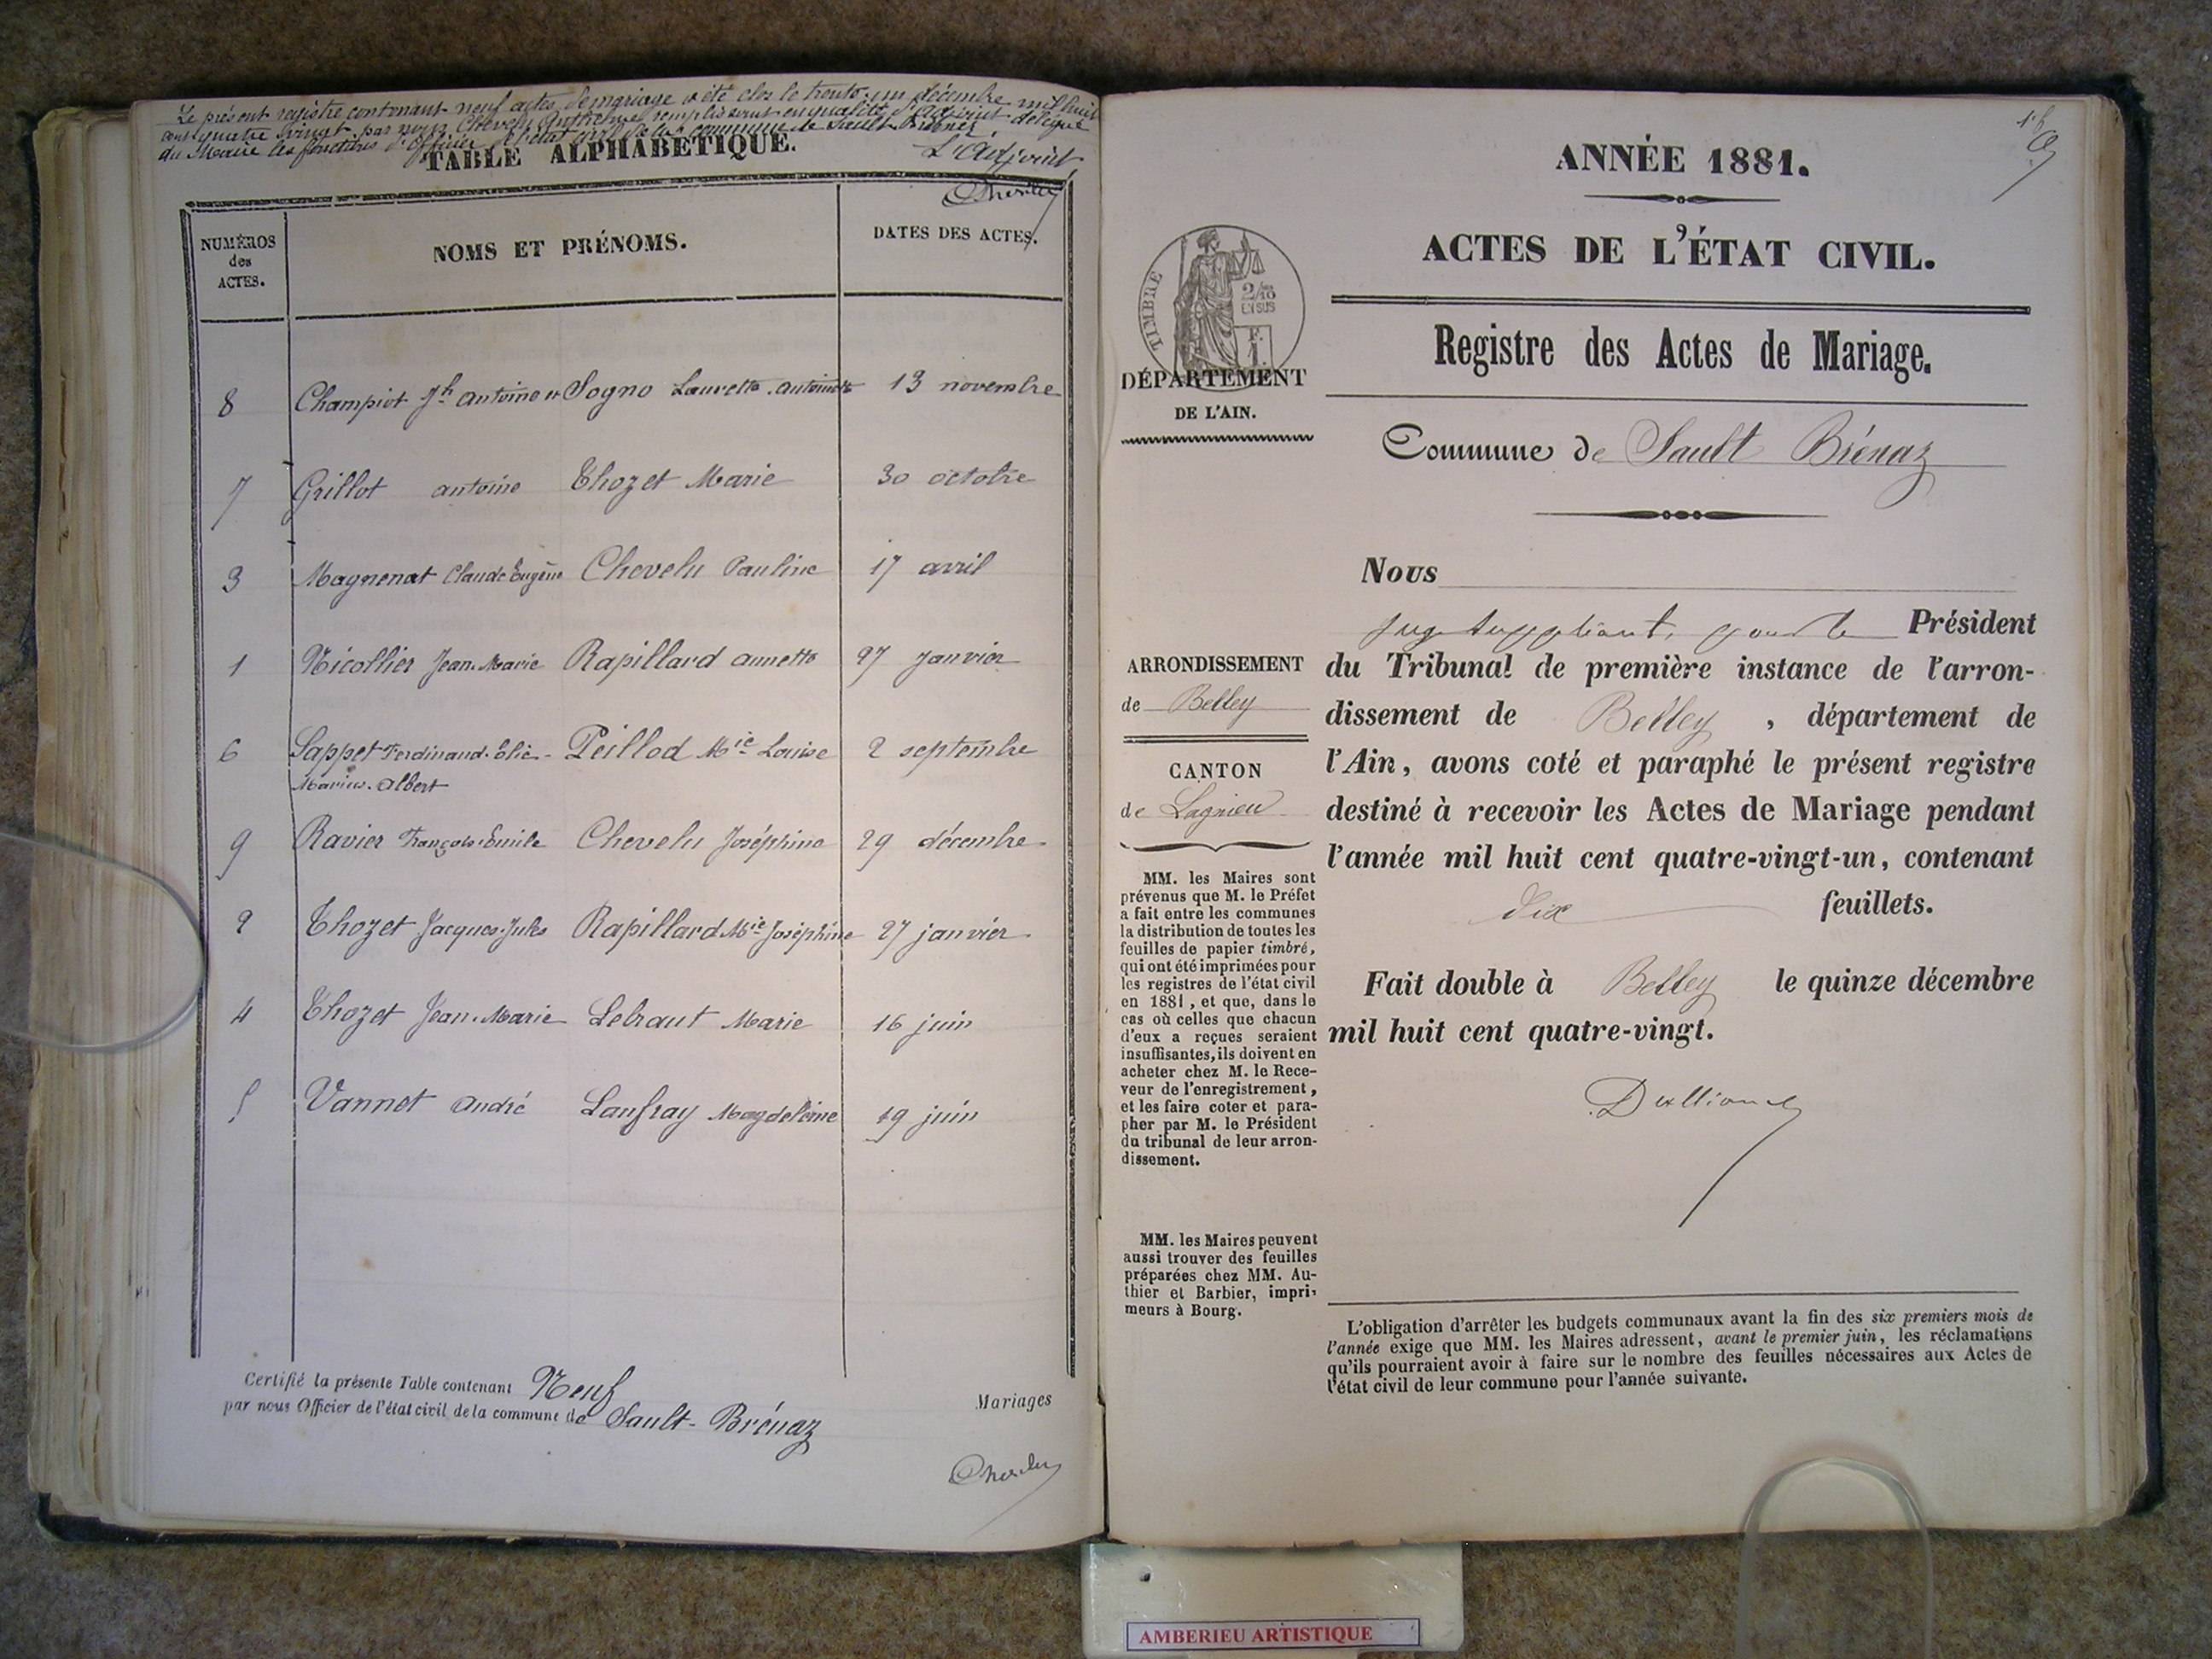 Le présent registre contenant neuf actes de mariage a été clos le trente-un décembre mil huit
cent quatre vingt par nous Chevelu Anthelme remplissant en qualité d'adjoint délégué
du Maire les fonctions d'officier de l'état civil de la commune de Sault-Brénaz
TABLE ALPHABÉTIQUE.
L'Adjoint
Chevelu
NUMÉROS
des
ACTES.
NOMS ET PRÉNOMS.
DATES DES ACTES.
8 Champiot Jh antoine et Sogno Laurette antoinette 13 novembre
7 Grillot antoine Thozet Marie 30 octobre
3 Magnenat Claude Eugène Chevelu Pauline 17 avril
1 Nicollier Jean-Marie Rapillard annette 27 janvier
6 Sappet Ferdinand-Elie- Peillod Mie Louise 2 septembre
Marius-Albert
9 Ravier François-Emile Chevelu Joséphine 29 décembre
2 Thozet Jacques-Jules Rapillard Mie Joséphine 27 janvier
4 Thozet Jean-Marie Lebraut Marie 16 juin
5 Vannet André Lanfray Magdeleine 19 juin
Certifié la présente Table contenant Neuf Mariages
par nous Officier de l'état civil de la commune de Sault-Brénaz
Chevelu
1er
ANNÉE 1881.
ACTES DE L'ÉTAT CIVIL.
TIMBRE
2/10
EN SUS
DÉPARTEMENT
DE L'AIN.
Registre des Actes de Mariage.
Commune de Sault Brénaz
ARRONDISSEMENT
de Belley
CANTON
de Lagnieu
MM. les Maires sont
prévenus que M. le Préfet
a fait entre les communes
la distribution de toutes les
feuilles de papier timbré,
qui ont été imprimées pour
les registres de l'état civil
en 1881, et que, dans le
cas où celles que chacun
d'eux a reçues seraient
insuffisantes, ils doivent en
acheter chez M. le Rece-
veur de l'enregistrement,
et les faire coter et para-
pher par M. le Président
du tribunal de leur arron-
dissement.
MM. les Maires peuvent
aussi trouver des feuilles
préparées chez MM. Au-
thier et Barbier, impri-
meurs à Bourg.
Nous
juge suppléant, pour le Président
du Tribunal de première instance de l'arron-
dissement de Belley, département de
l'Ain, avons coté et paraphé le présent registre
destiné à recevoir les Actes de Mariage pendant
l'année mil huit cent quatre-vingt-un, contenant
dix feuillets.
Fait double à Belley le quinze décembre
mil huit cent quatre-vingt.
L'obligation d'arrêter les budgets communaux avant la fin des six premiers mois de
l'année exige que MM. les Maires adressent, avant le premier juin, les réclamations
qu'ils pourraient avoir à faire sur le nombre des feuilles nécessaires aux Actes de
l'état civil de leur commune pour l'année suivante.
AMBERIEU ARTISTIQUE